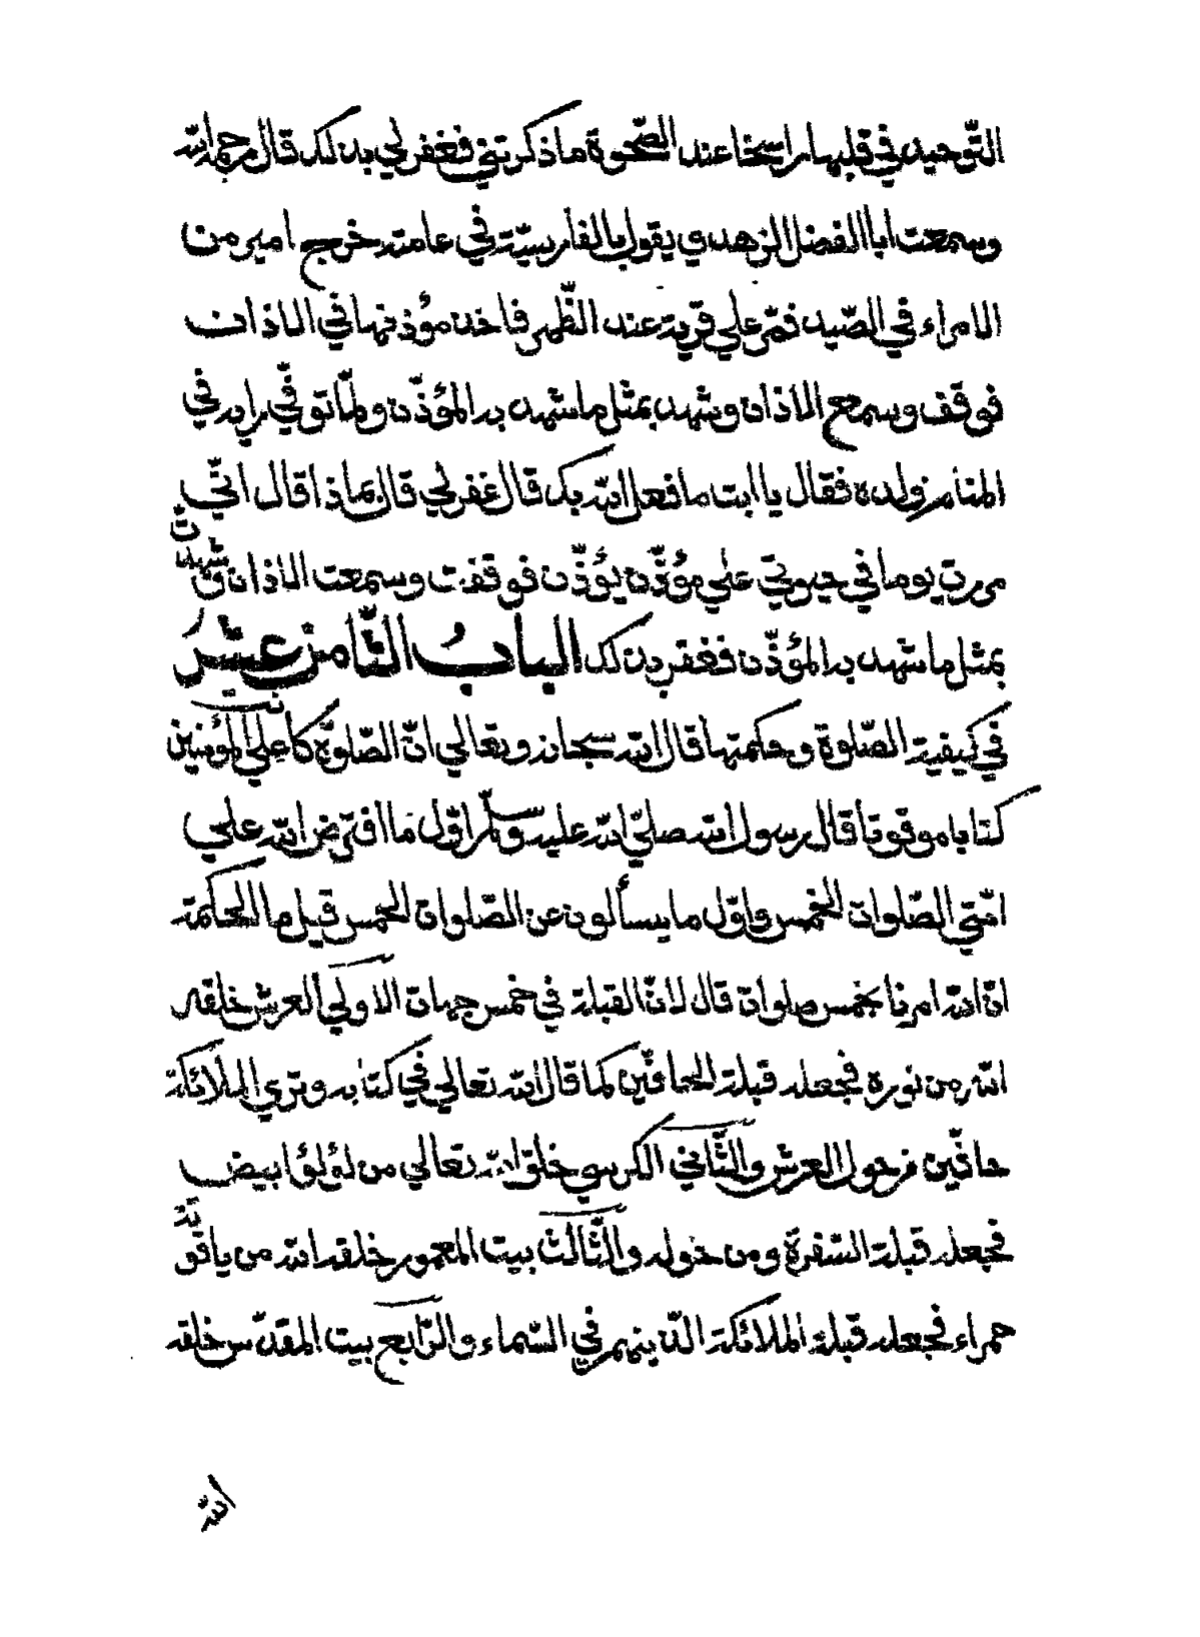 التّوحيد في قلبها راسخا عند الصّحوة ما ذكرتني فغفر لي بذلك قال رحمه الله
وسمعت ابا الفضل الزهدي يقول بالفارسيّة في عامته خرج امير من
الامراء في الصّيد فمّر علي قرية عند الظّهر فاخذ مؤذنها في الاذان
فوقف وسمع الاذان وشهد بمثل ما شهد به المؤذّن ولمّا توفّي رايه في
المنام ولده فقال يا ابت ما فعل الله بك قال غفر لي قال بماذا قال انّي
مررت يوما في حيوتي علي مؤذّن يؤذّن فوقفت وسمعت الاذان وشهدت
بمثل ما شهد به المؤذّن فغفر بذلك الباب الثّامن عشر
في كيفية الصّلوة وحكمتها قال الله سبحانه وتعالي انّ الصّلوة كانت علي المؤمنين
كتابا موقوتا قال رسول الله صليّ الله عليه وسلّم اوّل ما افترض الله علي
امّتي الصّلوات الخمس واوّل ما يسألون عن الصّلوات الخمس قيل ما الحكمة
انّ الله امرنا بخمس صلوات قال لانّ القبلة في خمس جهات الاولي العرش خلقه
الله من نوره فجعله قبلة الحافّين كما قال الله تعالي في كتابه وتري الملائكة
حافّين من حول العرش والثّاني الكرسي خلق الله تعالي من لؤلؤ ابيض
فجعله قبلة السّفرة ومن حوله والثّالث بيت المعمور خلقه الله من ياقوتة
حمراء فجعله قبلة الملائكة الّذينهم في السّماء والرّابع بيت المقدّس خلقه
الله